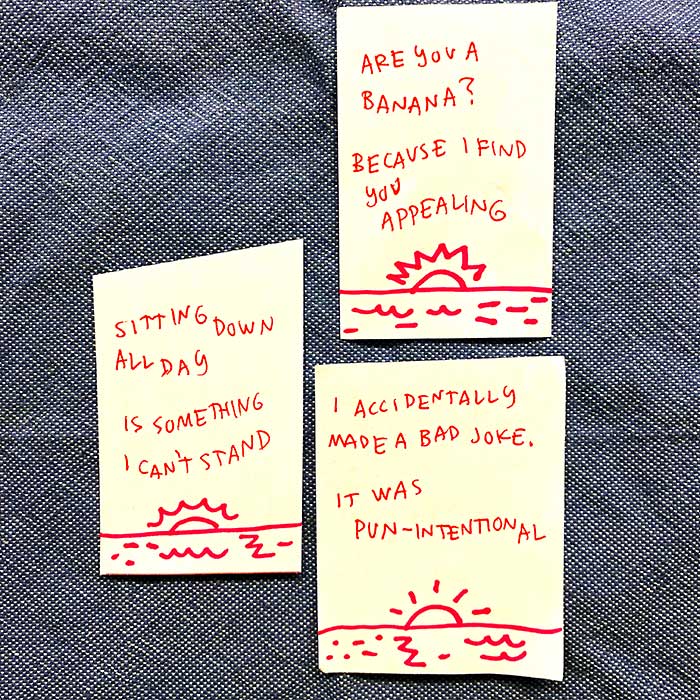 ARE YOU A
BANANA?
BECAUSE I FIND
YOU
APPEALING
SITTING DOWN
ALL DAY
IS SOMETHING
I CAN'T STAND
I ACCIDENTALLY
MADE A BAD JOKE.
IT WAS
PUN-INTENTIONAL